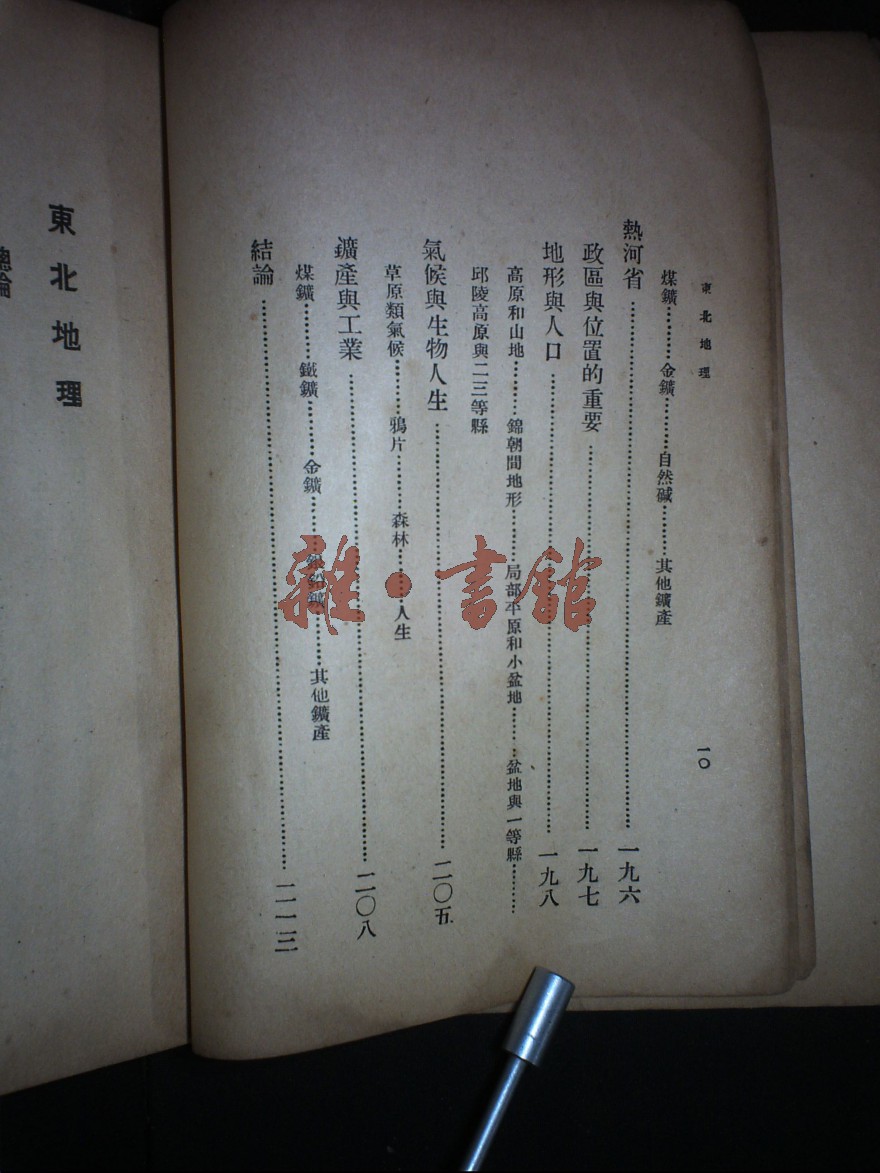 東北地理
一〇
煤鑛………金鑛………自然碱………其他鑛產
熱河省………一九六
政區與位置的重要………一九七
地形與人口………一九八
高原和山地………錦朝間地形………局部平原和小盆地………盆地與一等縣………
邱陵高原與二三等縣
氣候與生物人生………二〇五
草原類氣候………鴉片………森林………人生
鑛產與工業………二〇八
煤鑛………鐵鑛………金鑛………銀鉛鑛………其他鑛產
結論………二一三
雜·書館
東北地理
總論